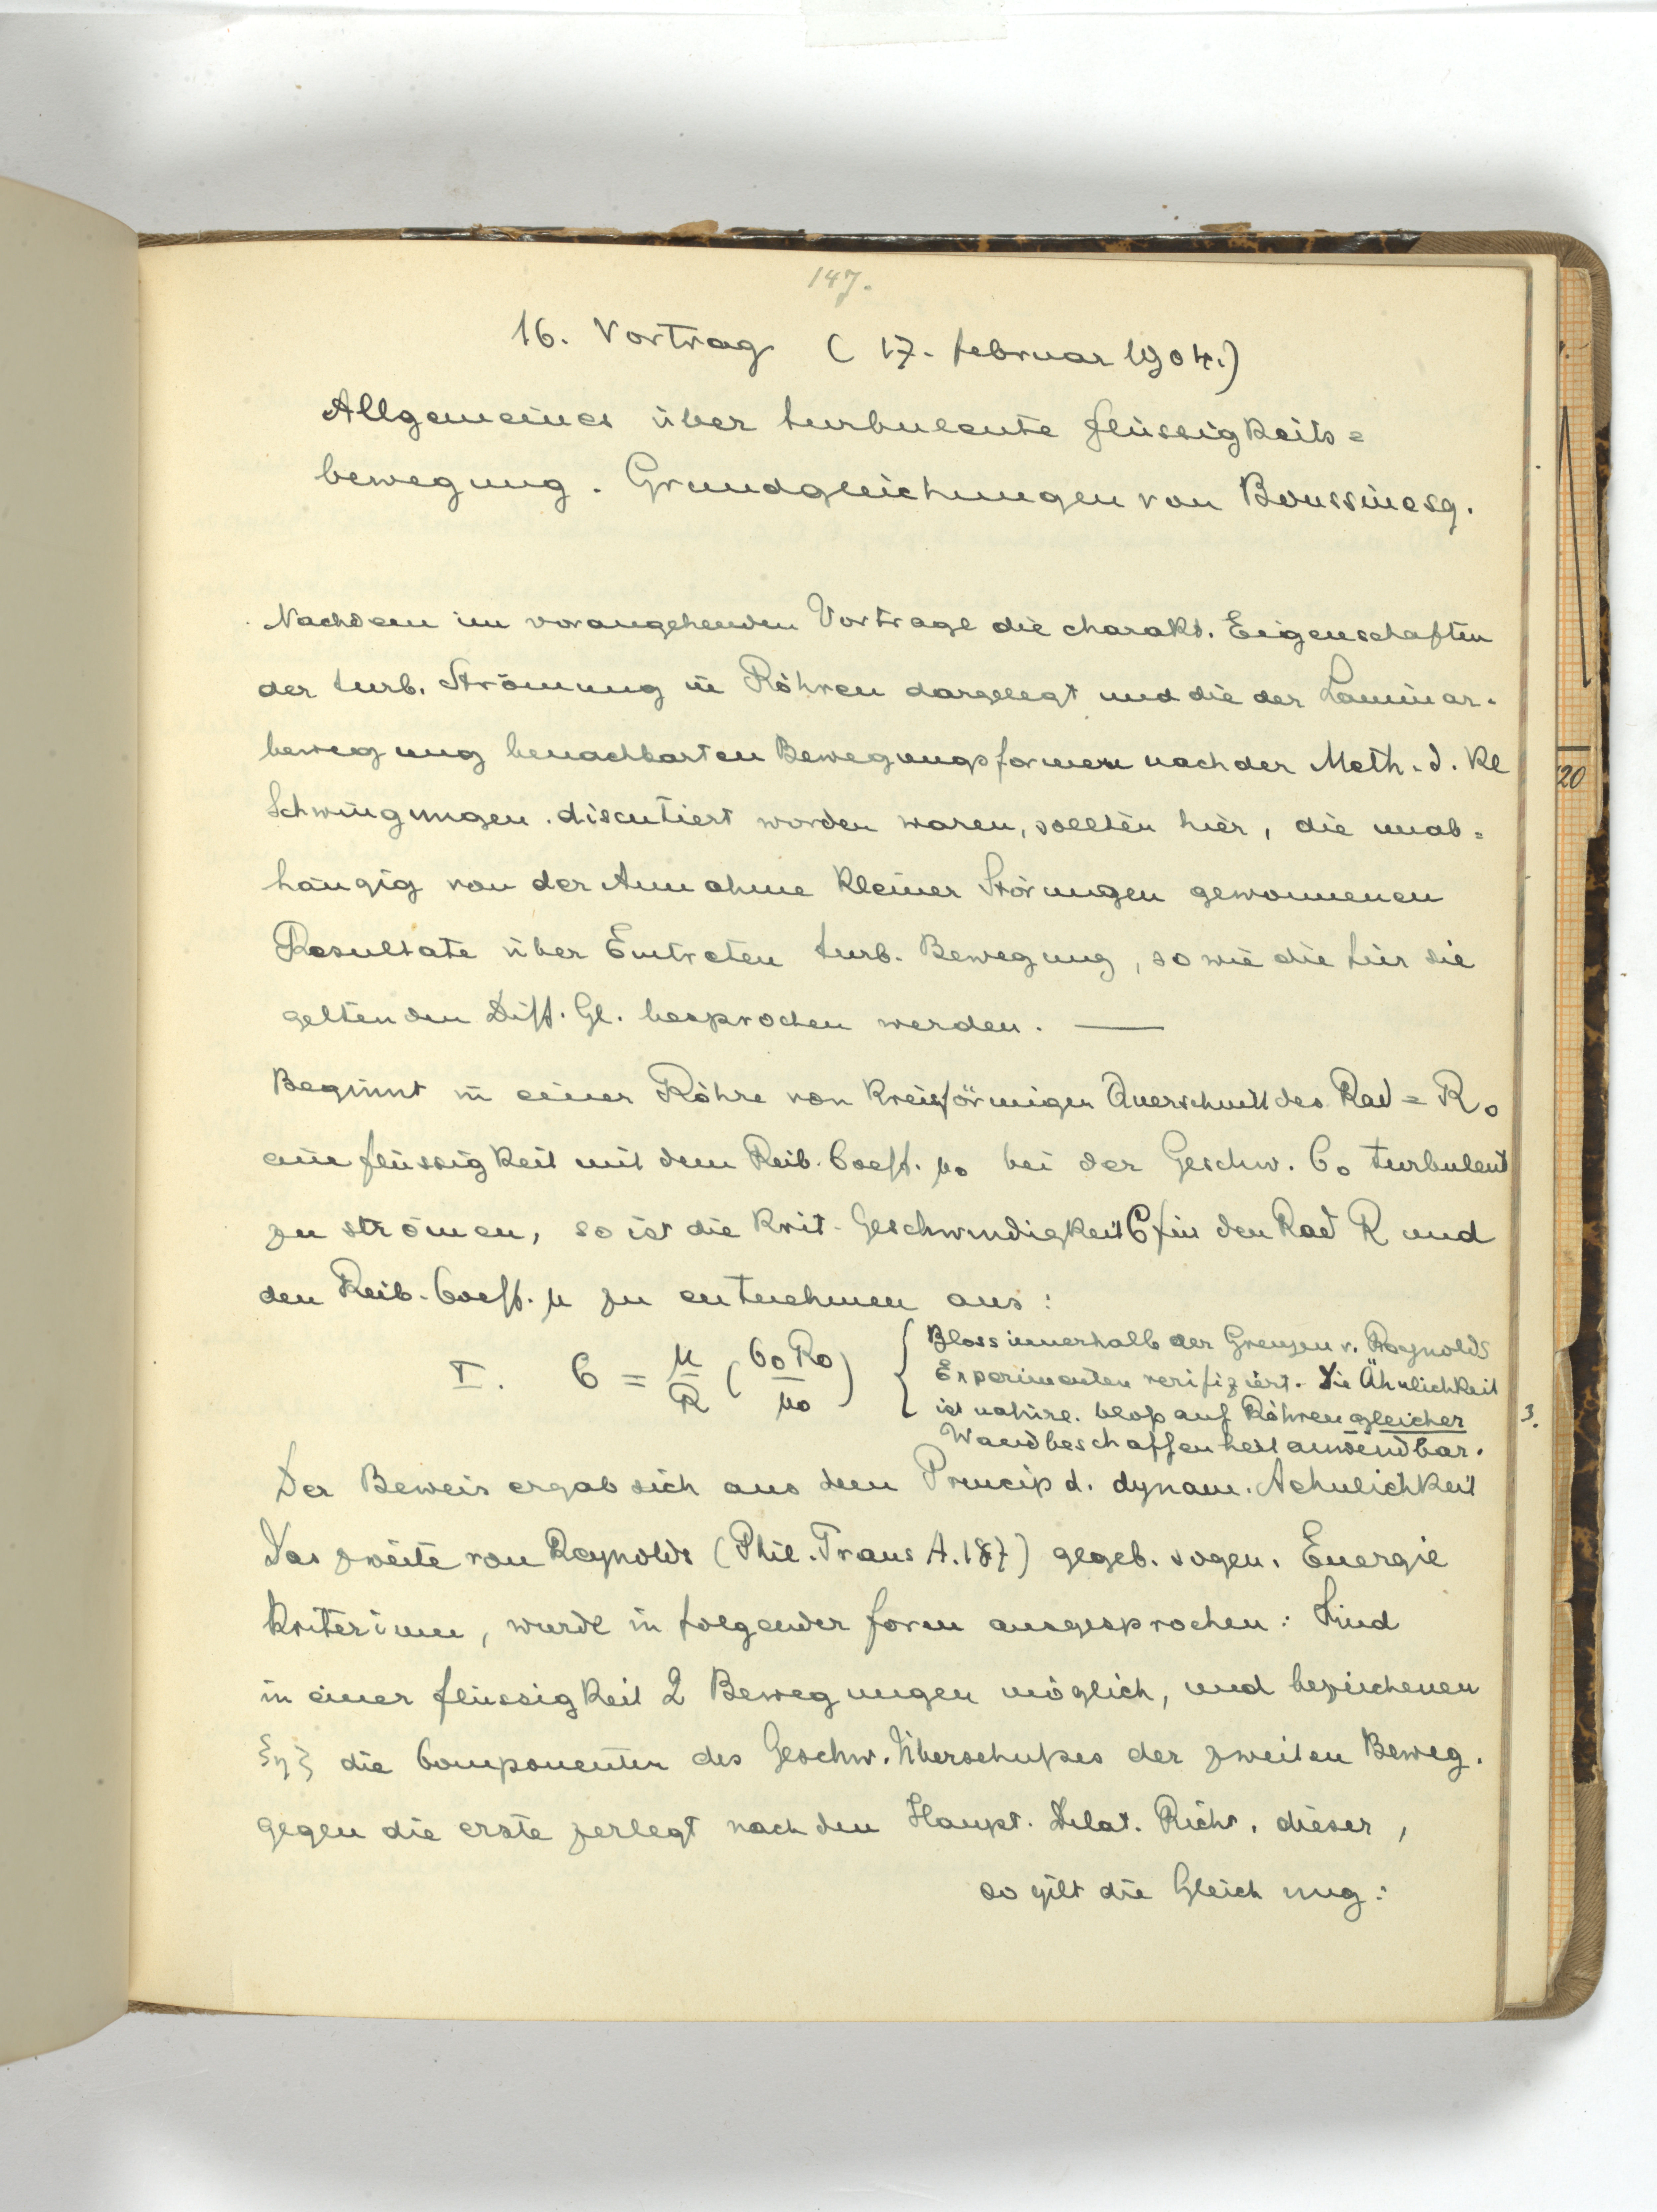 147.
16. Vortrag (17. Februar 1904.)
Allgemeines über turbulente Flüssigkeits=
bewegung. Grundgleichungen von Boussinesq.
Nachdem im vorangehenden Vortrage die charakt. Eigenschaften
der turb. Strömung in Röhren dargelegt und die der Laminar-
bewegung benachbarten Bewegungsformen nach der Meth. d. kl
Schwingungen discutiert worden waren, sollten hier, die unab=
hängig von der Annahme kleiner Störungen gewonnenen
Resultate über Eintreten turb. Bewegung, sowie die für sie
geltenden Diff. Gl. besprochen werden. —
Beginnt in einer Röhre von kreisförmigen Querschnitt des Rad = R₀
eine Flüssigkeit mit dem Reib. Coeff. μ₀ bei der Geschw. C₀ turbulent
zu strömen, so ist die krit. Geschwindigkeit C für den Rad R und
den Reib. Coeff. μ zu entnehmen aus:
I. C = μ/R (C₀R₀/μ₀)
{ Bloss innerhalb der Grenzen v. Reynolds
Experimenten verifiziert. Die Ähnlichkeit
ist natürl. bloß auf Röhren gleicher
Wandbeschaffenheit anwendbar.
3.
20
Der Beweis ergab sich aus dem Princip d. dynam. Aehnlichkeit
Das zweite von Reynolds (Phil. Trans A. 187) gegeb. sogen. Energie
kriterium, wurde in folgender Form ausgesprochen: Sind
in einer Flüssigkeit 2 Bewegungen möglich, und bezeichenen
ξ η ζ die Componenten des Geschw. Überschußes der zweiten Beweg.
gegen die erste zerlegt nach den Haupt. Dilat. Richt. dieser,
so gilt die Gleichung: